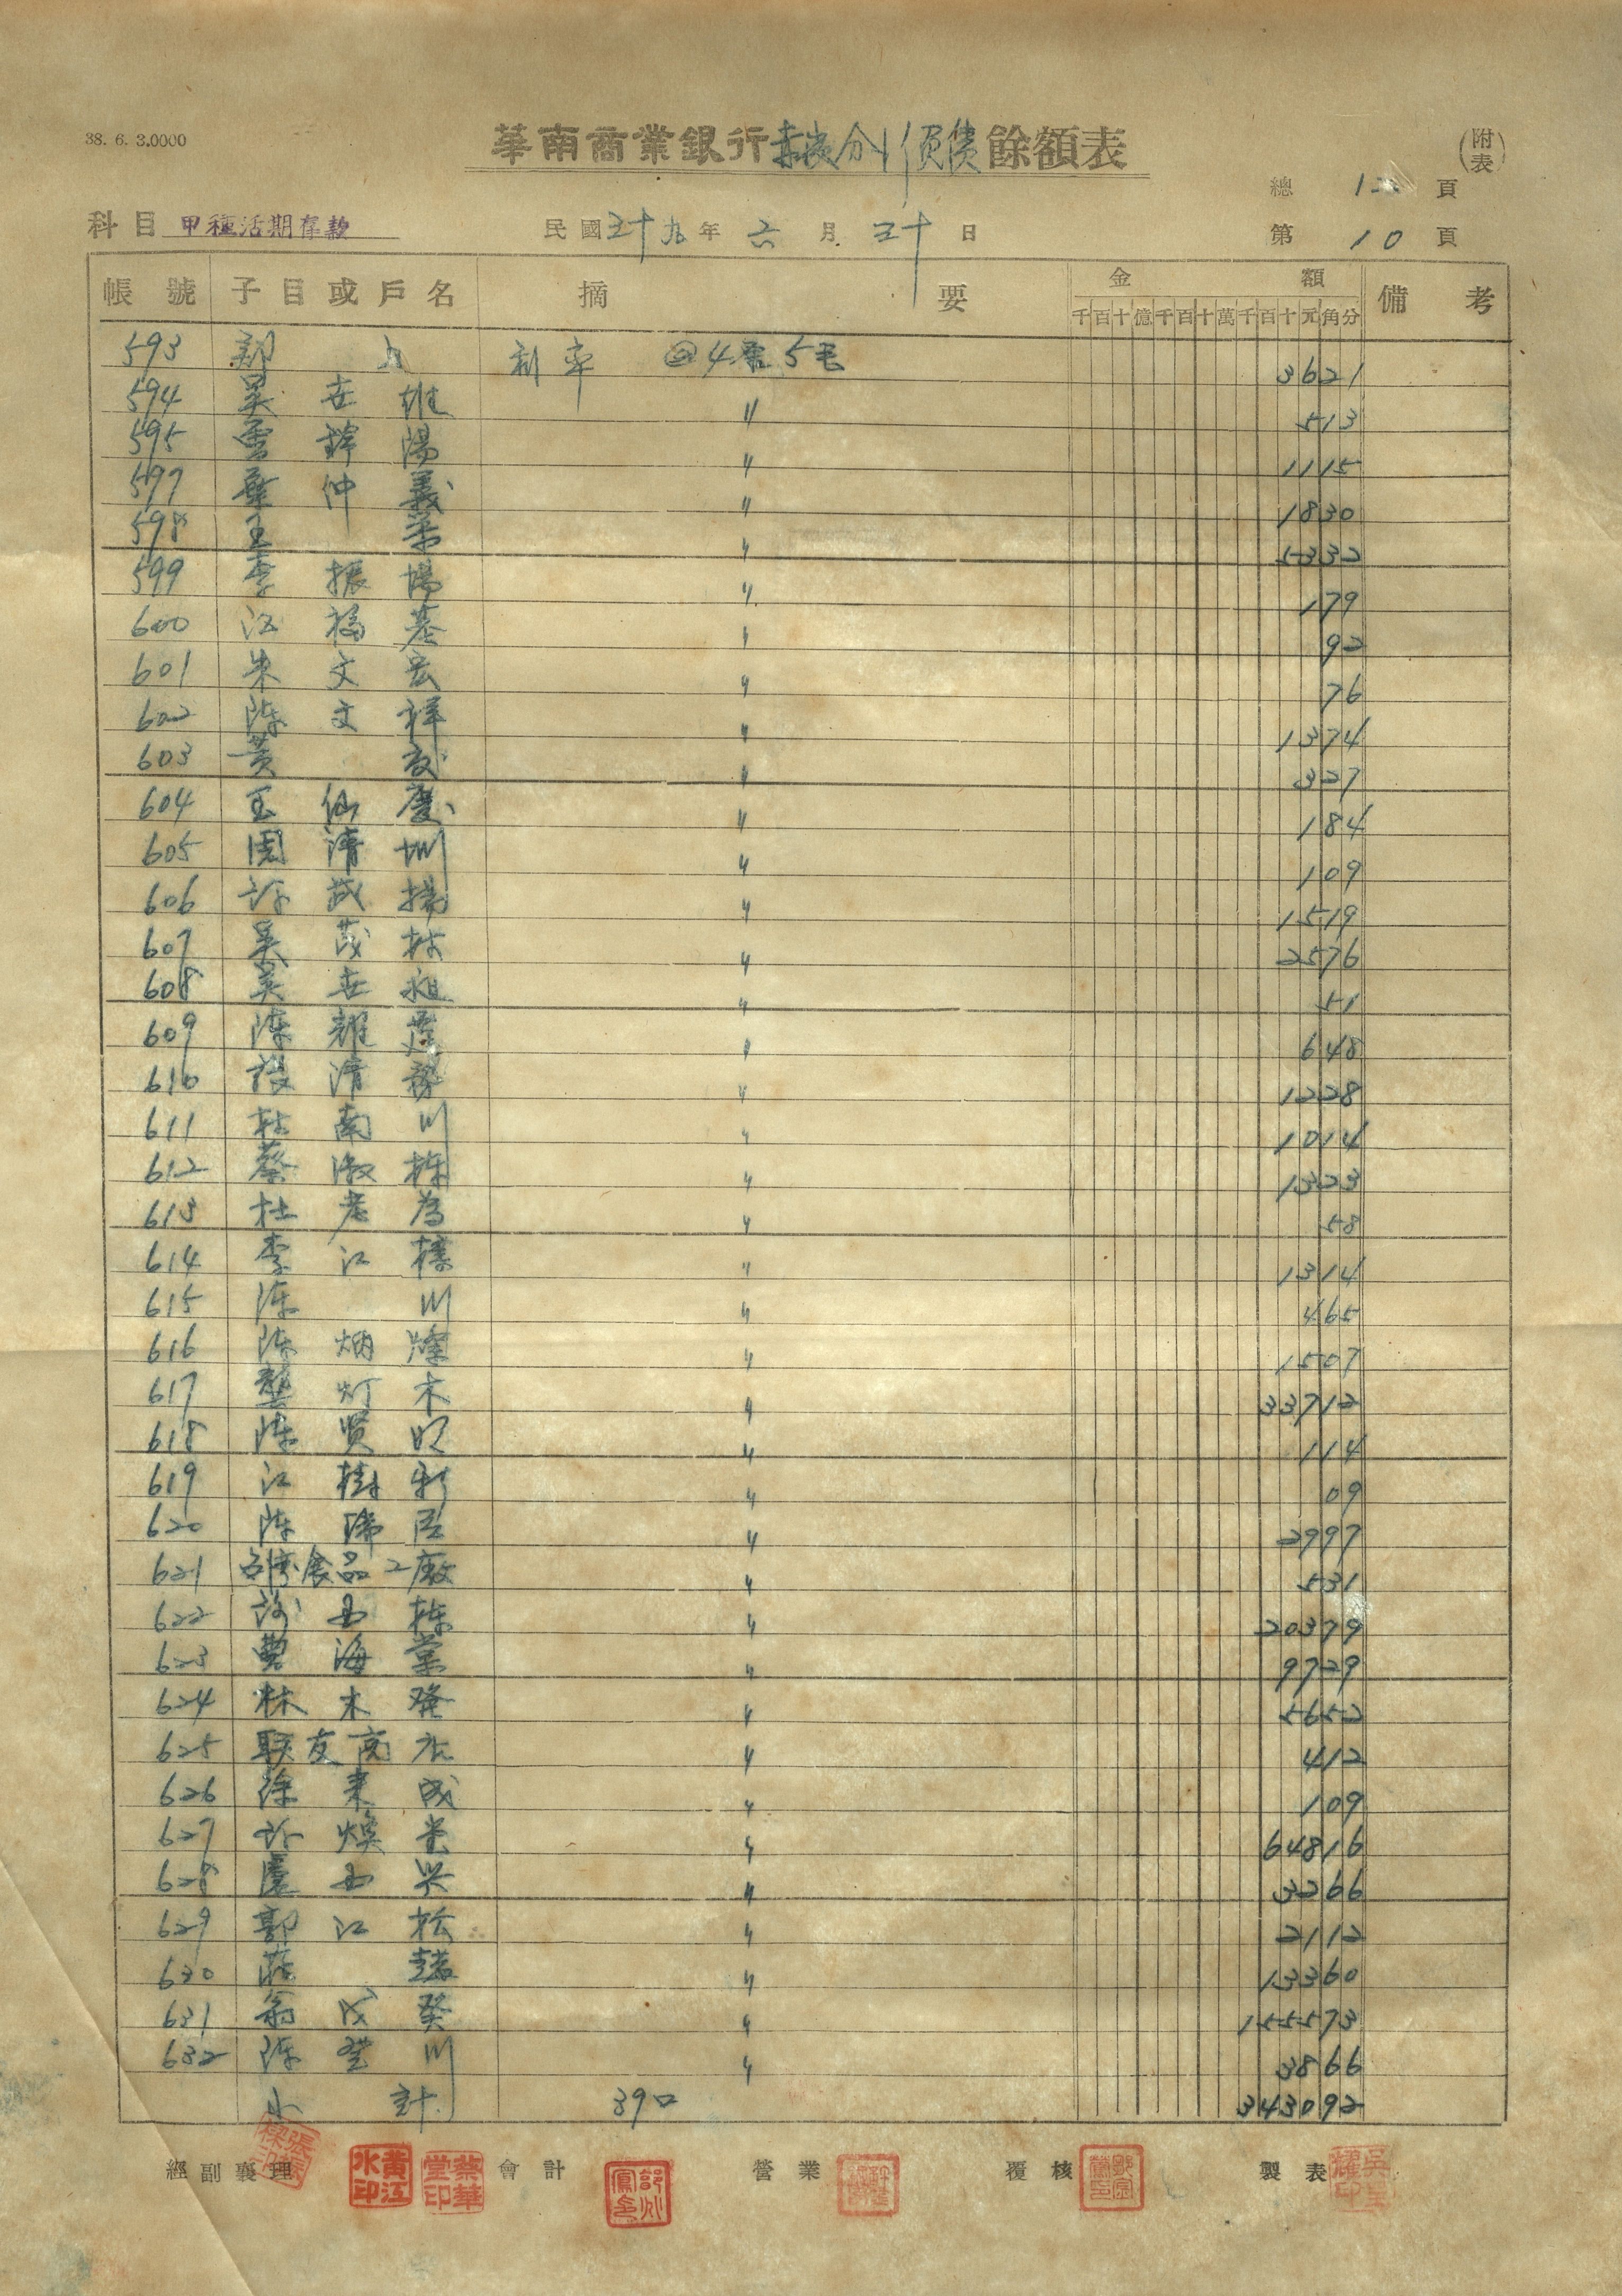 38. 6. 3.0000
華南商業銀行赤崁分行負債餘額表
(附表)
總 頁
科目 甲種活期存款 民國三十九年六月三十日 第 10 頁
帳號 子目或戶名 摘要 金額 備考
千百十億千百十萬千百十元角分
593 郭 利率 @4厘5毛 3621
594 吳世雄 〃 513
595 陽 〃 1115
597 葉仲義 〃 1830
598 王榮 〃 5332
599 李振揚 〃 179
600 江福基 〃 92
601 朱文宏 〃 76
602 陈文祥 〃 1374
603 黃 〃 327
604 王仙慶 〃 184
605 周清圳 〃 109
606 許成揚 〃 1519
607 吳茂林 〃 2576
608 吳世祖 〃 51
609 陈耀 〃 648
610 清 〃 1228
611 杜南川 〃 1014
612 蔡淑棟 〃 1323
613 杜老為 〃 58
614 李江樣 〃 1314
615 陈川 〃 465
616 陈炳燦 〃 1507
617 龔灯木 〃 33712
618 陈賢明 〃 114
619 江樹新 〃 09
620 陈 〃 2997
621 台湾食品工廠 〃 531
622 謝西棟 〃 20379
623 曹海棠 〃 9729
624 林木發 〃 5652
625 联友商店 〃 412
626 徐来成 〃 109
627 許煥光 〃 64816
628 盧西兴 〃 3266
629 郭江松 〃 2112
630 莊 〃 13360
631 翁戊癸 〃 155573
632 陈登川 〃 3866
小計 39口 343092
經副襄理 會計 營業 覆核 製表
黃江水印 蔡華堂印